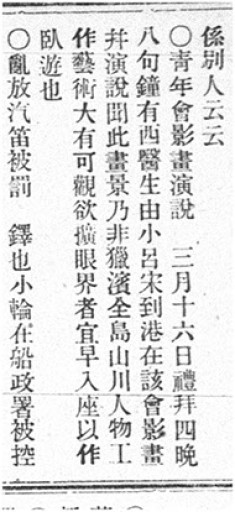 係別人云云
○青年會影畫演說　三月十六日禮拜四晚
八句鐘有西醫生由小呂宋到港在該會影畫
幷演說聞此畫景乃非獵濱全島山川人物工
作藝術大有可觀欲擴眼界者宜早入座以作
臥遊也
○亂放汽笛被罰　鐸也小輪在船政署被控